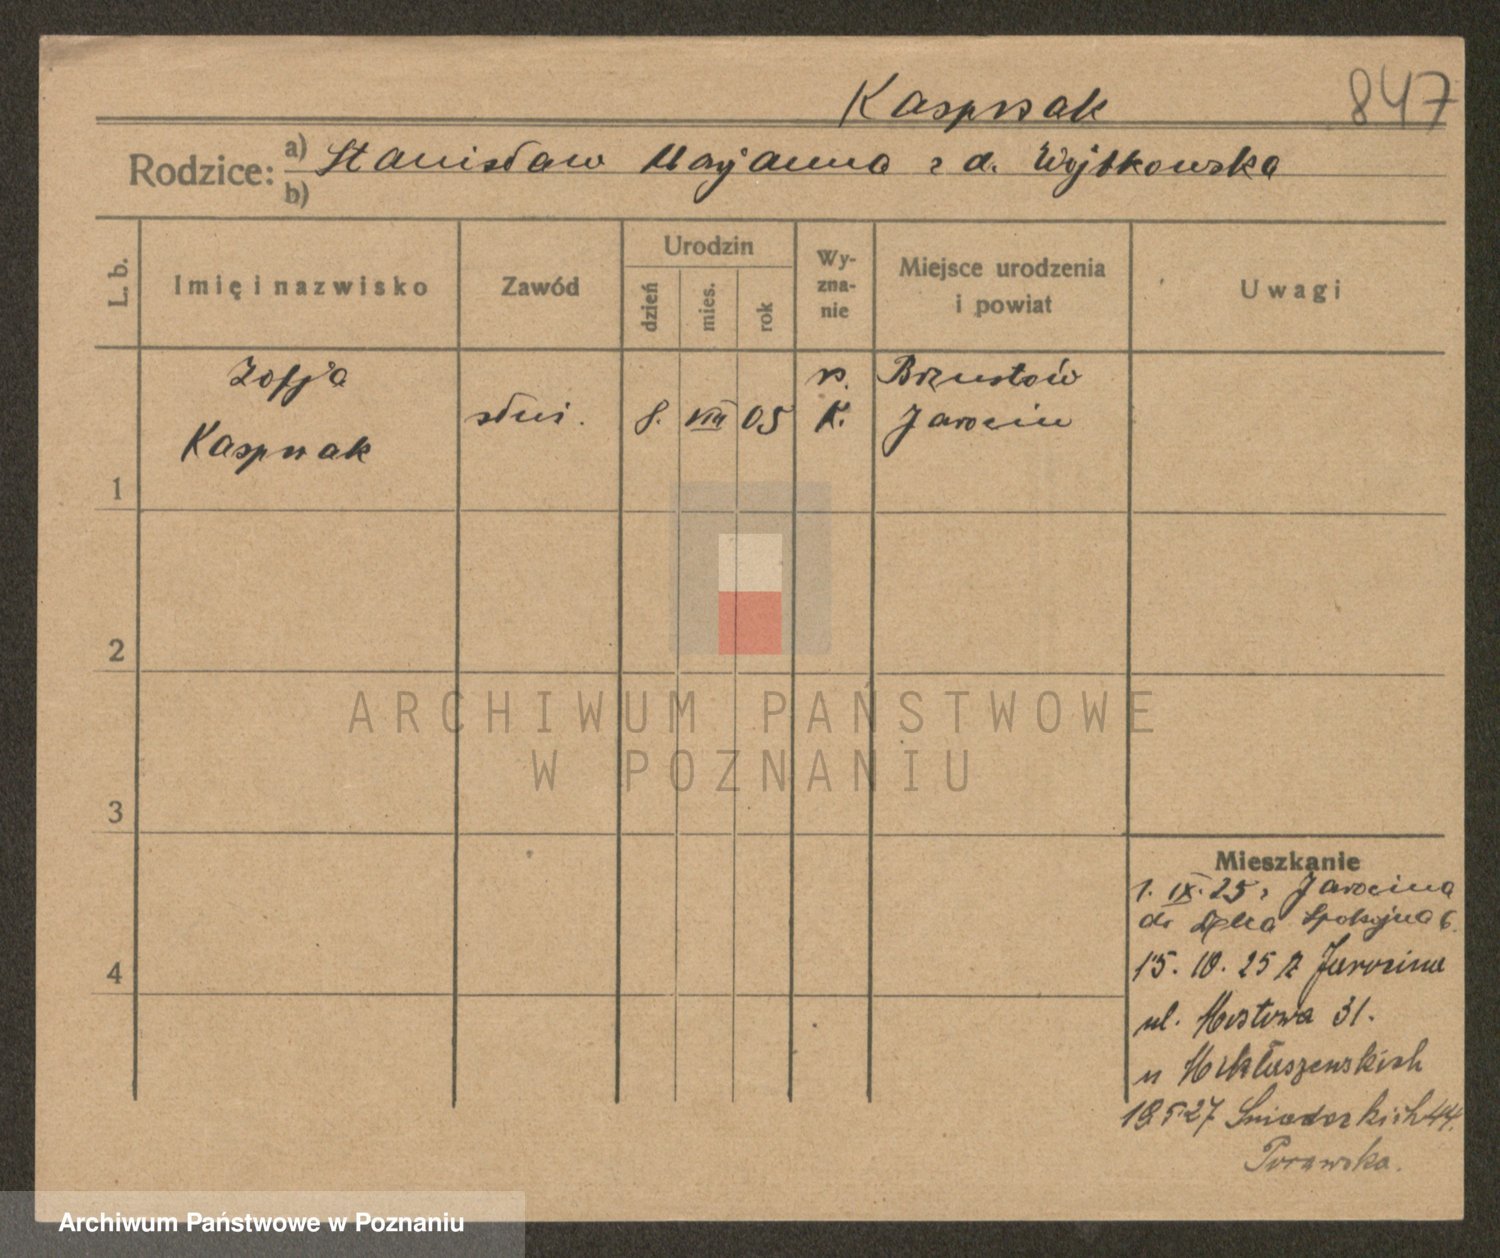 847
Kasprzak
Rodzice: a) Stanisław Marjanna z d. Wojtkowska
b)
L. b.
Imię i nazwisko
Zawód
Urodzin
dzień
mies.
rok
Wy-
zna-
nie
Miejsce urodzenia
i powiat
Uwagi
Zofja
Kasprzak
służ.
8. VIII 05
rz.
K.
Brzustów
Jarocin
1
2
3
4
Mieszkanie
1. IX. 25 z Jarocina
do Spokojna 6.
15. 10. 25 z Jarocina
ul. Mostowa 31.
u
18 5 27 Śniadeckich 44.
ARCHIWUM PAŃSTWOWE
W POZNANIU
Archiwum Państwowe w Poznaniu